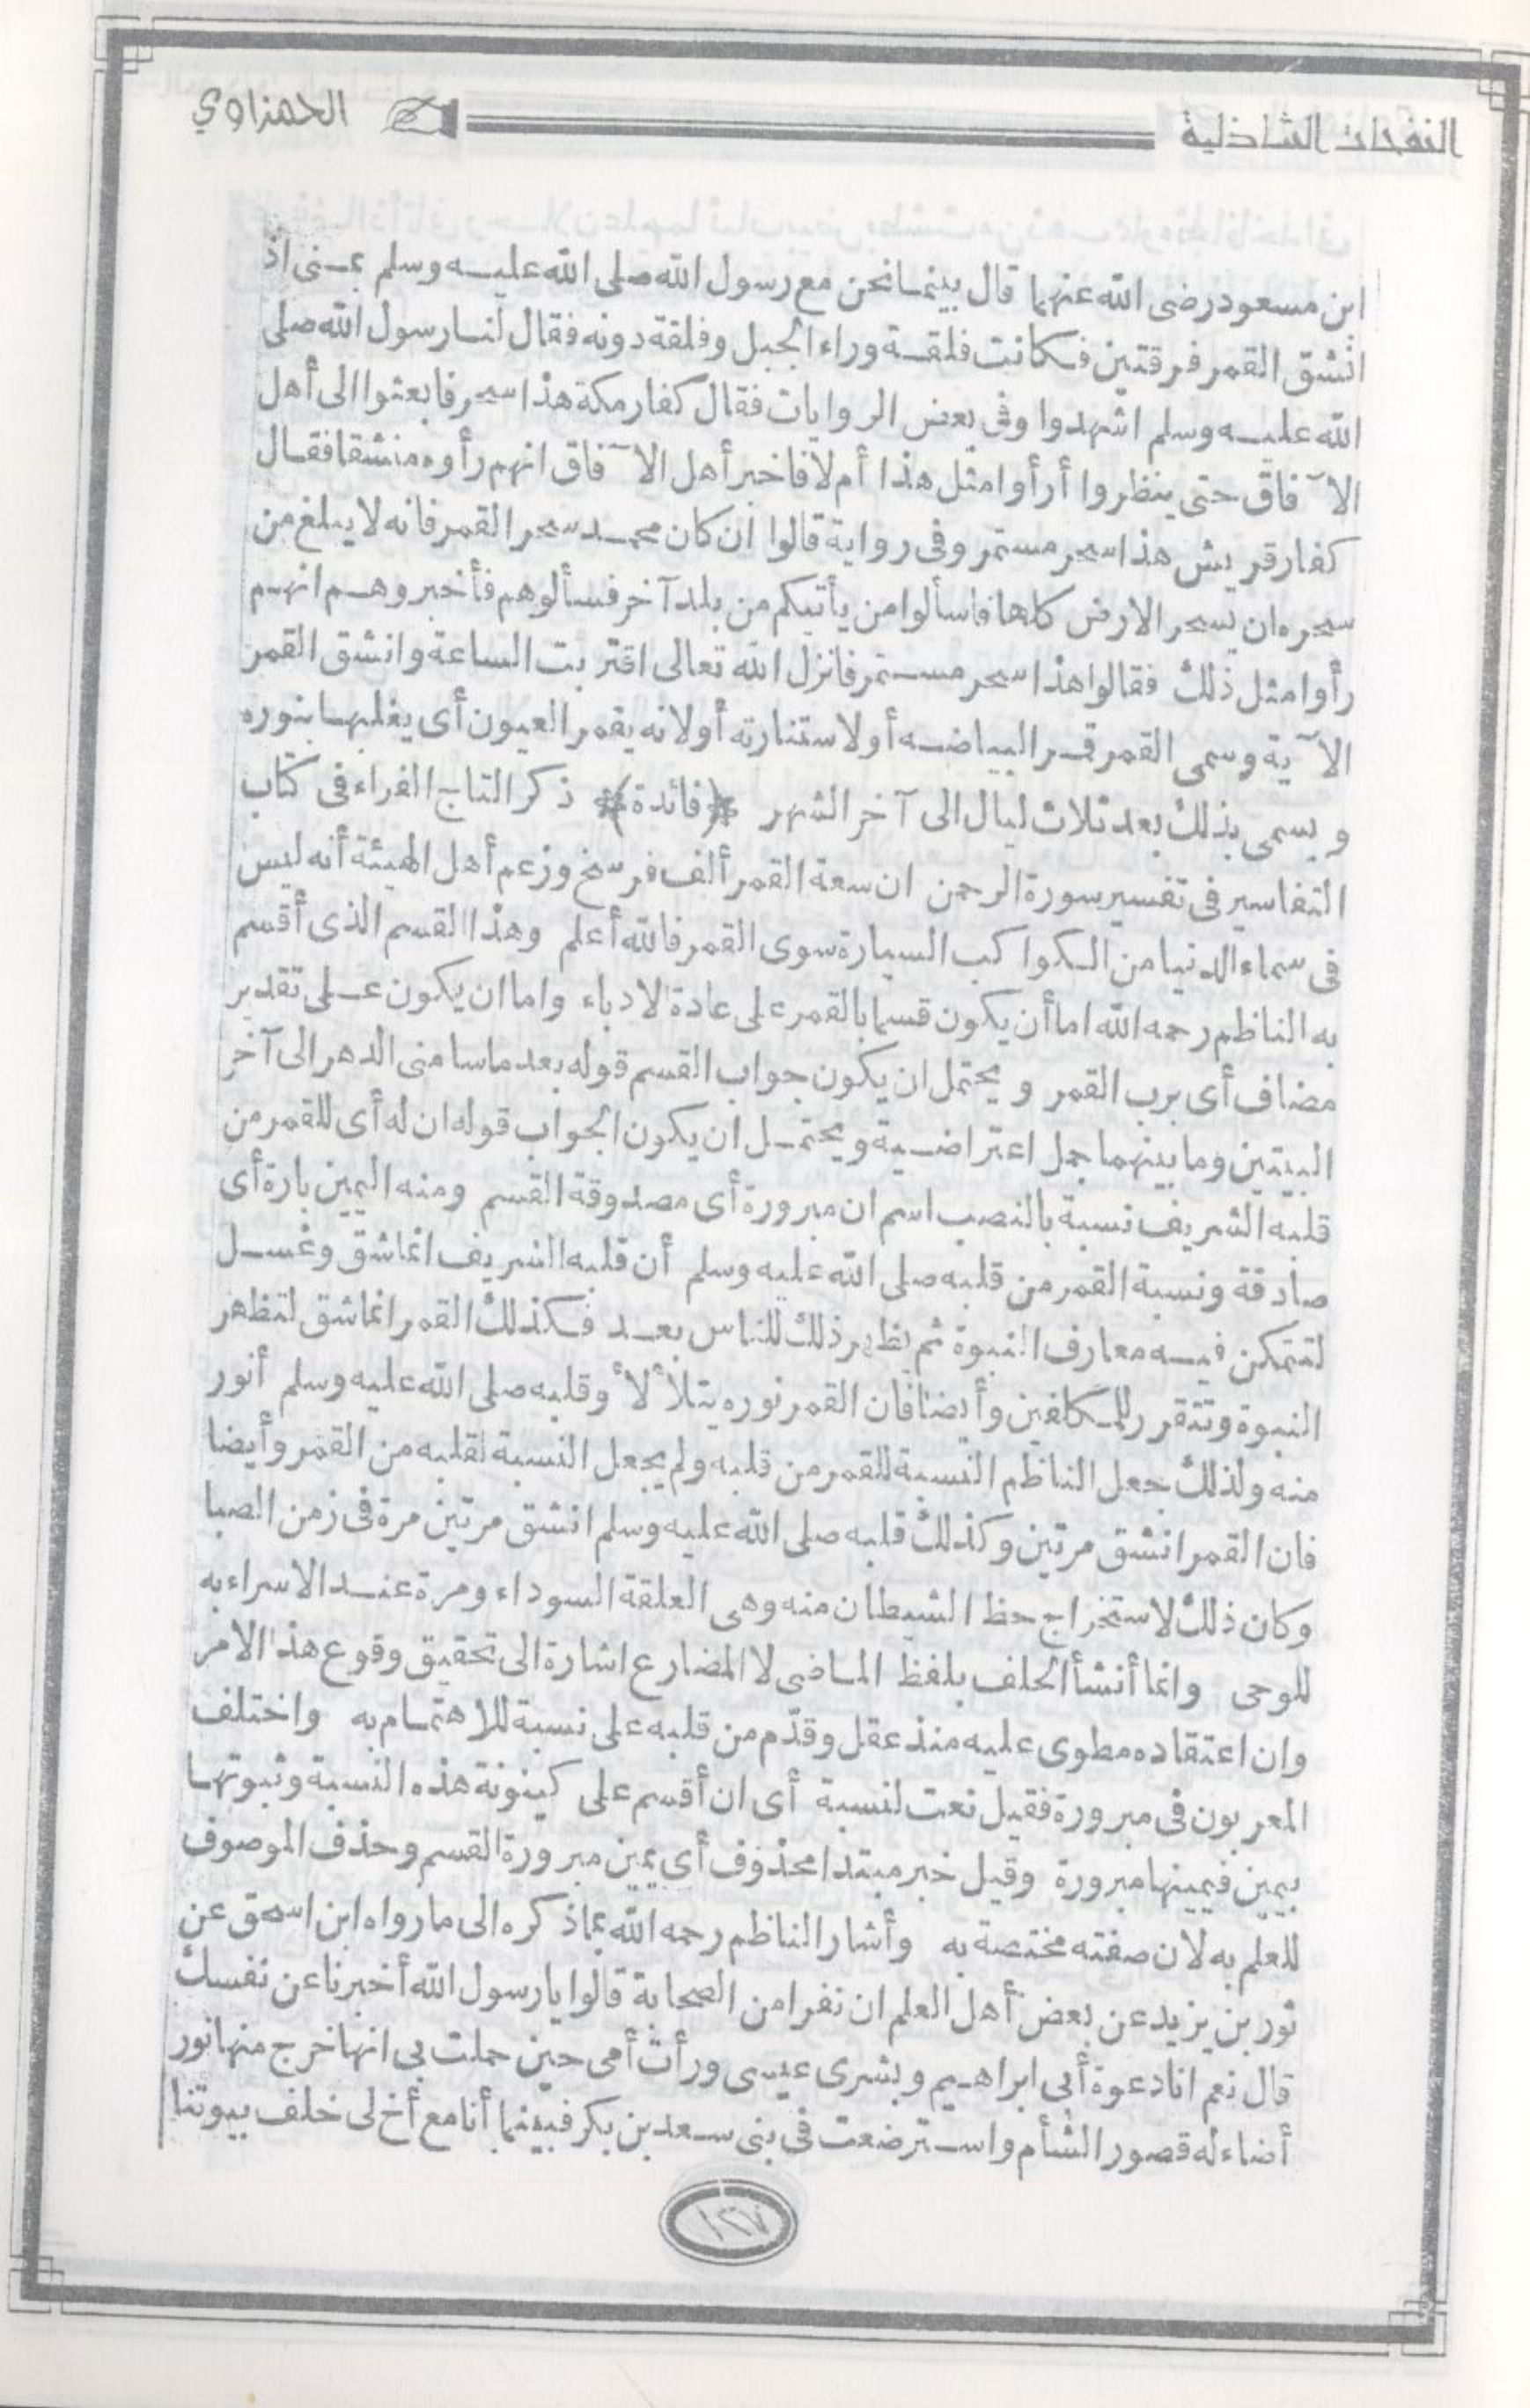 النفحات الشاذلية
الحمزاوي
ابن مسعود رضى الله عنهما قال بينما نحن مع رسول الله صلى الله عليه وسلم بمنى اذ
انشق القمر فرقتين فكانت فلقة وراء الجبل وفلقة دونه فقال لنا رسول الله صلى
الله عليه وسلم اشهدوا وفى بعض الروايات فقال كفار مكة هذا سحر فابعثوا الى أهل
الآفاق حتى ينظروا أرأوا مثل هذا أم لا فاخبر أهل الآفاق انهم رأوه منشقا فقال
كفار قريش هذا سحر مستمر وفى رواية قالوا ان كان محمد سحر القمر فانه لا يبلغ من
سحره ان يسحر الارض كلها فاسألوا من يأتيكم من بلد آخر فسألوهم فأخبروهم انهم
رأوا مثل ذلك فقالوا هذا سحر مستمر فانزل الله تعالى اقتربت الساعة وانشق القمر
الآية وسمى القمر قمرا لبياضه أو لاستنارته أو لانه يقمر العيون أى يغلبها بنوره
ويسمى بذلك بعد ثلاث ليال الى آخر الشهر ﴿فائدة﴾ ذكر التاج الفراء فى كتاب
التفاسير فى تفسير سورة الرحمن ان سعة القمر ألف فرسخ وزعم أهل الهيئة أنه ليس
فى سماء الدنيا من الكواكب السيارة سوى القمر فالله أعلم وهذا القسم الذى أقسم
به الناظم رحمه الله اما أن يكون قسما بالقمر على عادة الادباء واما ان يكون على تقدير
مضاف أى برب القمر ويحتمل ان يكون جواب القسم قوله بعد ما سامنى الدهر الى آخر
البيتين وما بينهما جمل اعتراضية ويحتمل ان يكون الجواب قوله ان له أى للقمر من
قلبه الشريف نسبة بالنصب اسم ان مبرورة أى مصدوقة القسم ومنه اليمين بارة أى
صادقة ونسبة القمر من قلبه صلى الله عليه وسلم أن قلبه الشريف انما شق وغسل
لتتمكن فيه معارف النبوة ثم يظهر ذلك للناس بعد فكذلك القمر انما شق لتظهر
النبوة وتتقرر للمكلفين وأيضا فان القمر نوره يتلألأ وقلبه صلى الله عليه وسلم أنور
منه ولذلك جعل الناظم النسبة للقمر من قلبه ولم يجعل النسبة لقلبه من القمر وأيضا
فان القمر انشق مرتين وكذلك قلبه صلى الله عليه وسلم انشق مرتين مرة فى زمن الصبا
وكان ذلك لاستخراج حظ الشيطان منه وهى العلقة السوداء ومرة عند الاسراء به
للوحى وانما أنشأ الحلف بلفظ الماضى لا المضارع اشارة الى تحقيق وقوع هذا الامر
وان اعتقاده مطوى عليه منذ عقل وقدّم من قلبه على نسبة للاهتمام به واختلف
المعربون فى مبرورة فقيل نعت لنسبة أى ان أقسم على كينونة هذه النسبة وثبوتها
بيمين فيمينها مبرورة وقيل خبر مبتدا محذوف أى يمين مبرورة القسم وحذف الموصوف
للعلم به لان صفته مختصة به وأشار الناظم رحمه الله بما ذكره الى ما رواه ابن اسحق عن
ثور بن يزيد عن بعض أهل العلم ان نفرا من الصحابة قالوا يا رسول الله أخبرنا عن نفسك
قال نعم انا دعوة أبى ابراهيم وبشرى عيسى ورأت أمى حين حملت بى انها خرج منها نور
أضاء له قصور الشأم واسترضعت فى بنى سعد بن بكر فبينما أنا مع أخ لى خلف بيوتنا
١٢٧